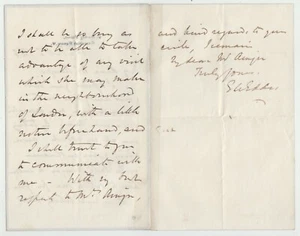 I shall be so busy as
not to be able to take
advantage of any visit
which she may make
in the neighbourhood
of London, with a little
notice beforehand, and
I shall trust to you
to communicate with
me – With my best
respect to Mrs Ainger,
and kind regards to your
circle, I remain
My dear Mr Ainger
Truly yours